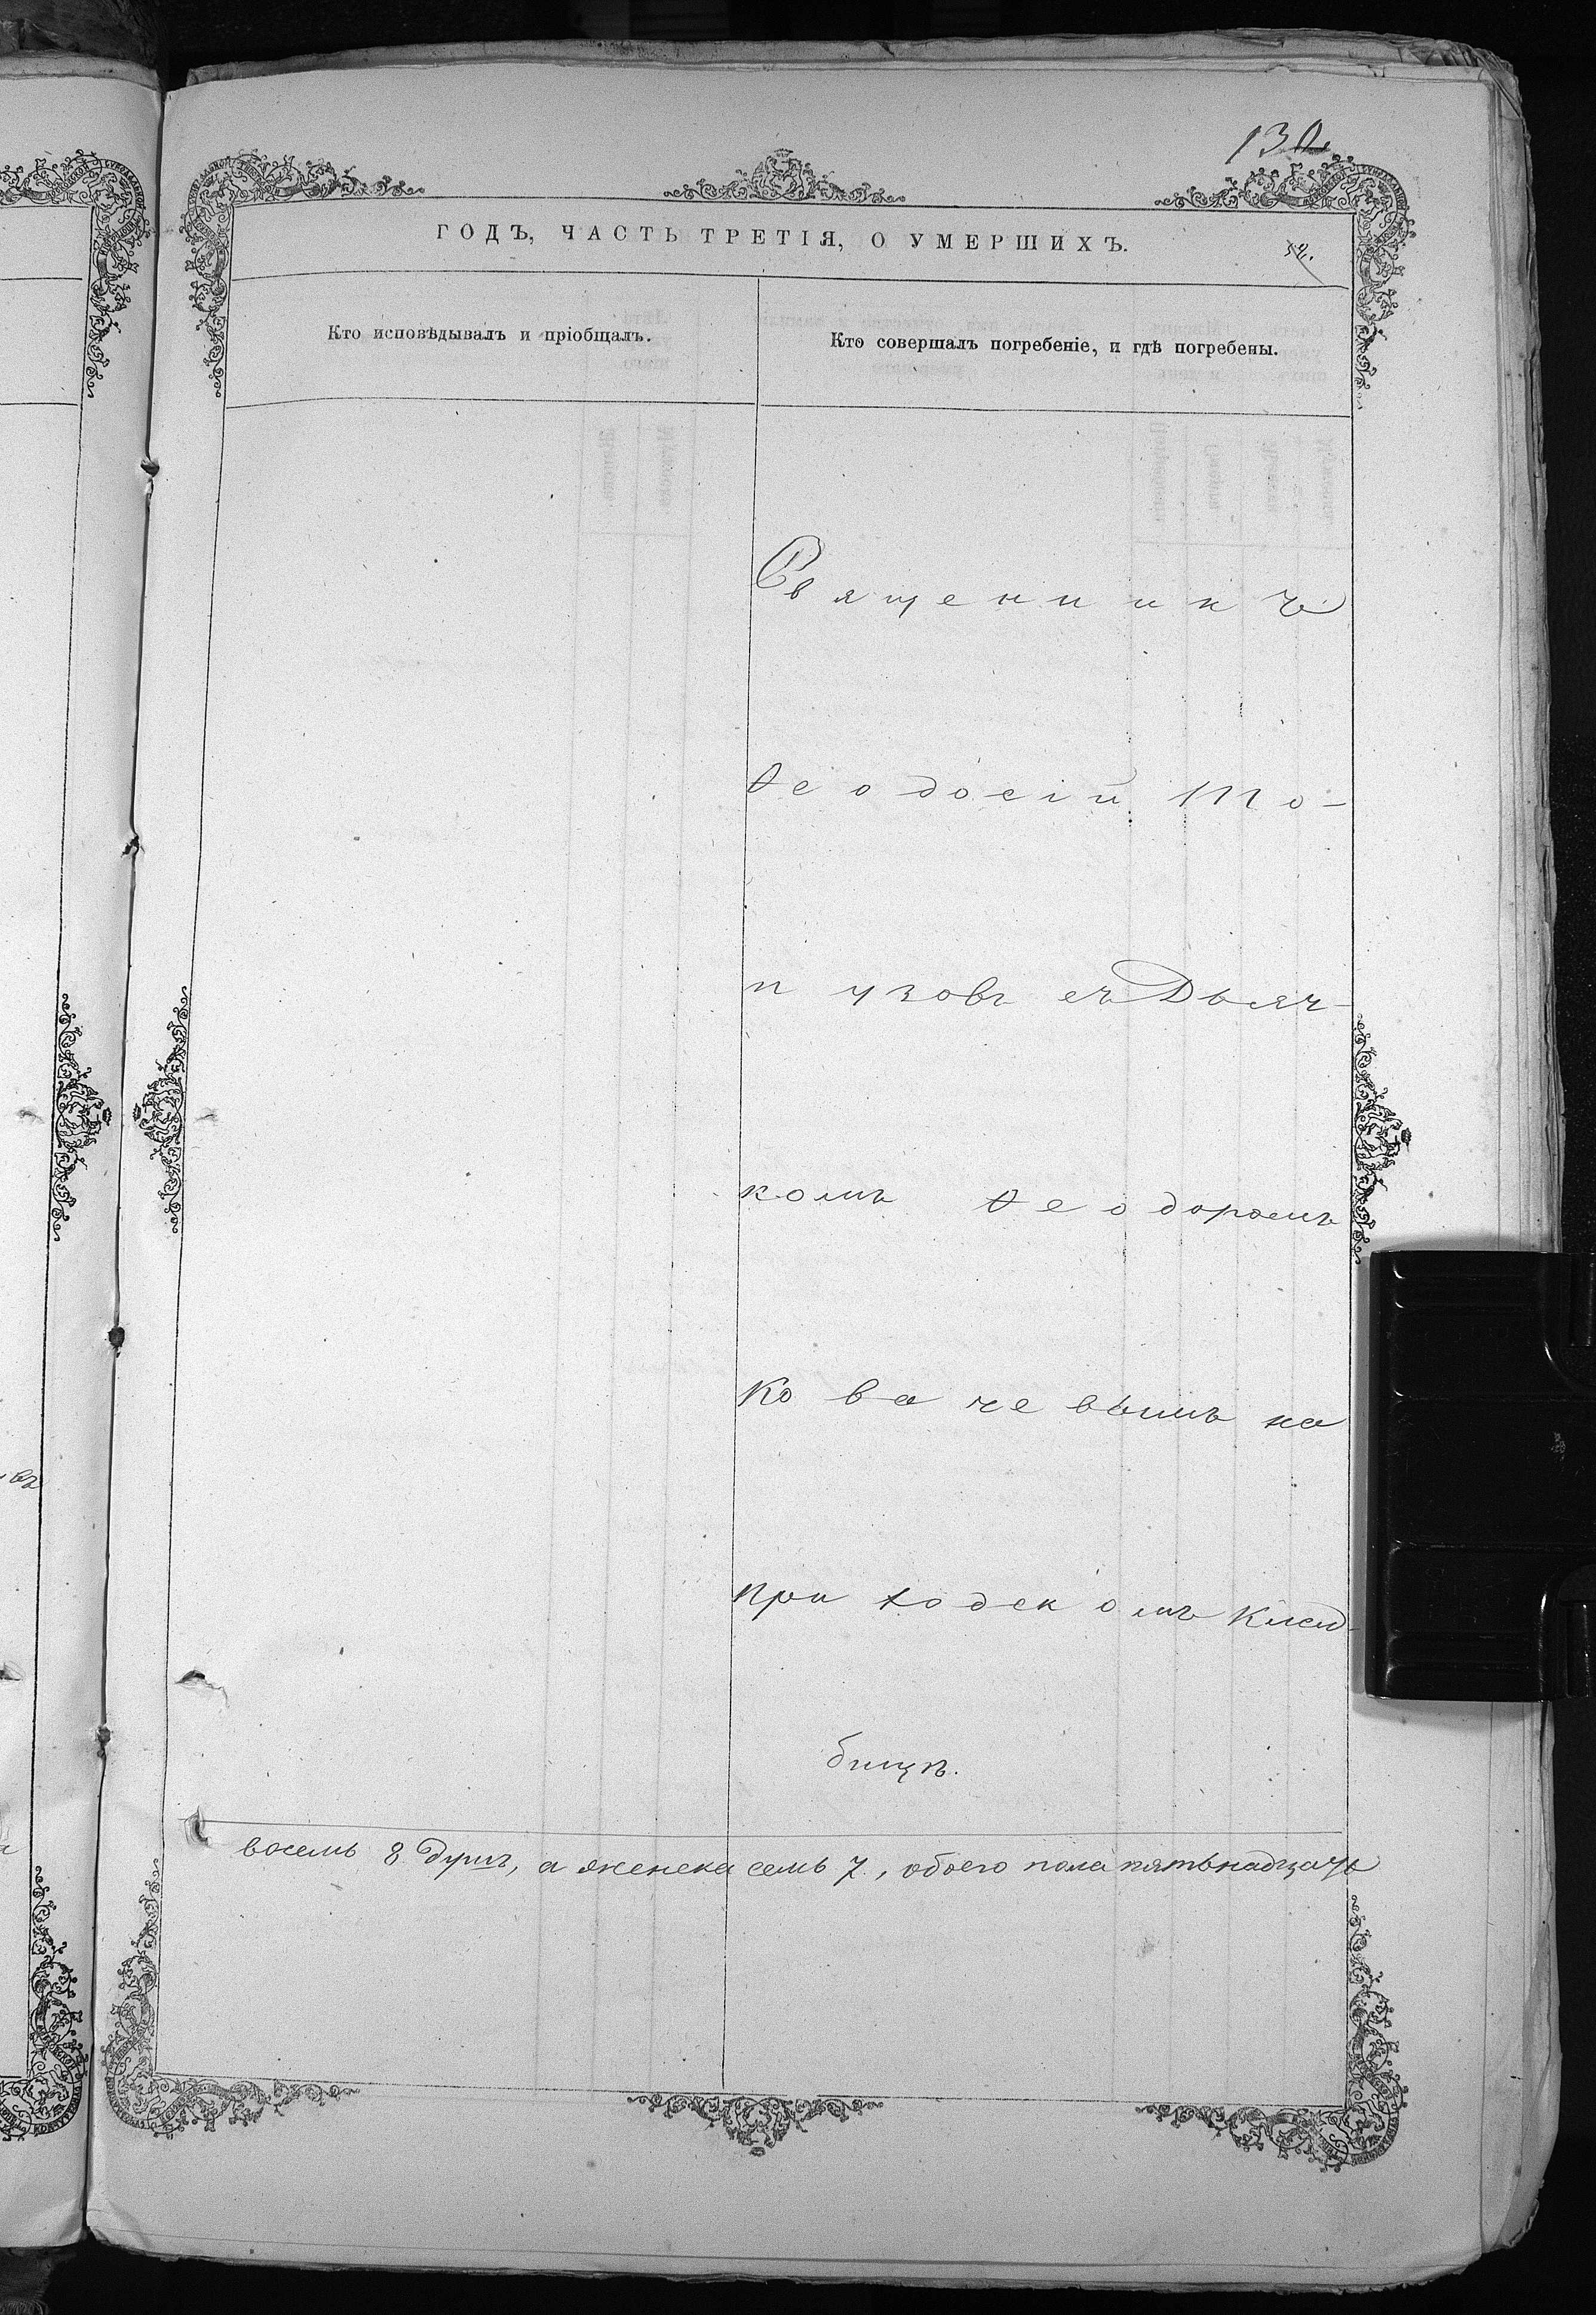 130
ГОДЪ, ЧАСТЬ ТРЕТІЯ, О УМЕРШИХЪ.
Кто исповѣдывалъ и пріобщалъ.
Кто совершалъ погребеніе, и гдѣ погребены.
Священникъ
Ѳеодосій То-
пузовъ съ Дьяч-
комъ Ѳеодоромъ
Ковачевымъ на
приходскомъ Клад-
бищѣ.
восемь 8 душъ, а женска семь 7, обоего пола пятьнадцать